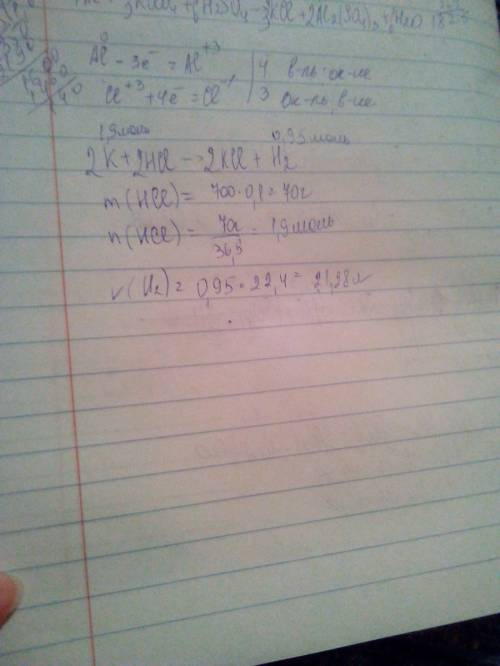 3KClO₂ + 6H₂SO₄ → 3KCl + 2Al₂(SO₄)₃ + 6H₂O
Al⁰ - 3e⁻ = Al⁺³ | 4 в-ль; ок-ие
Cl⁺³ + 4e⁻ = Cl⁻¹ | 3 ок-ль, в-ие
1,9 моль 0,95 моль
2K + 2HCl → 2KCl + H₂
m(HCl) = 700 · 0,1 = 70г
n(HCl) = 70г / 36,5 = 1,9 моль
v(H₂) = 0,95 · 22,4 = 21,28 л